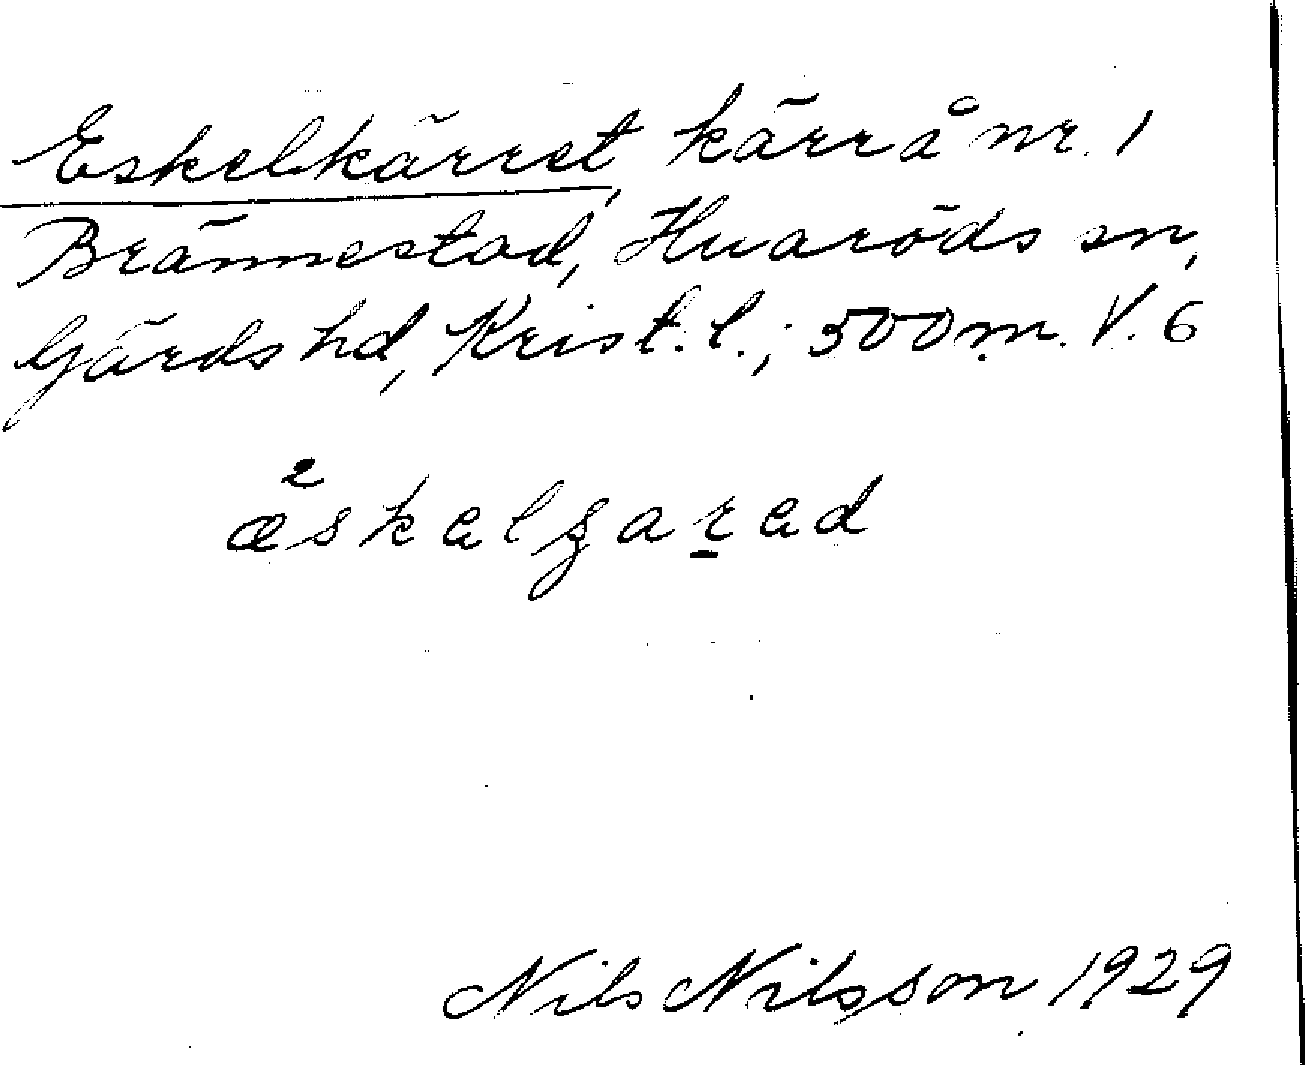 Eskelkärret, kärr å nr. 1
Brännestad, Huaröds sn,
Gärds hd, Krist. l.; 500 m. V. 6
æ̊skəlgarəd
Nils Nilsson 1929